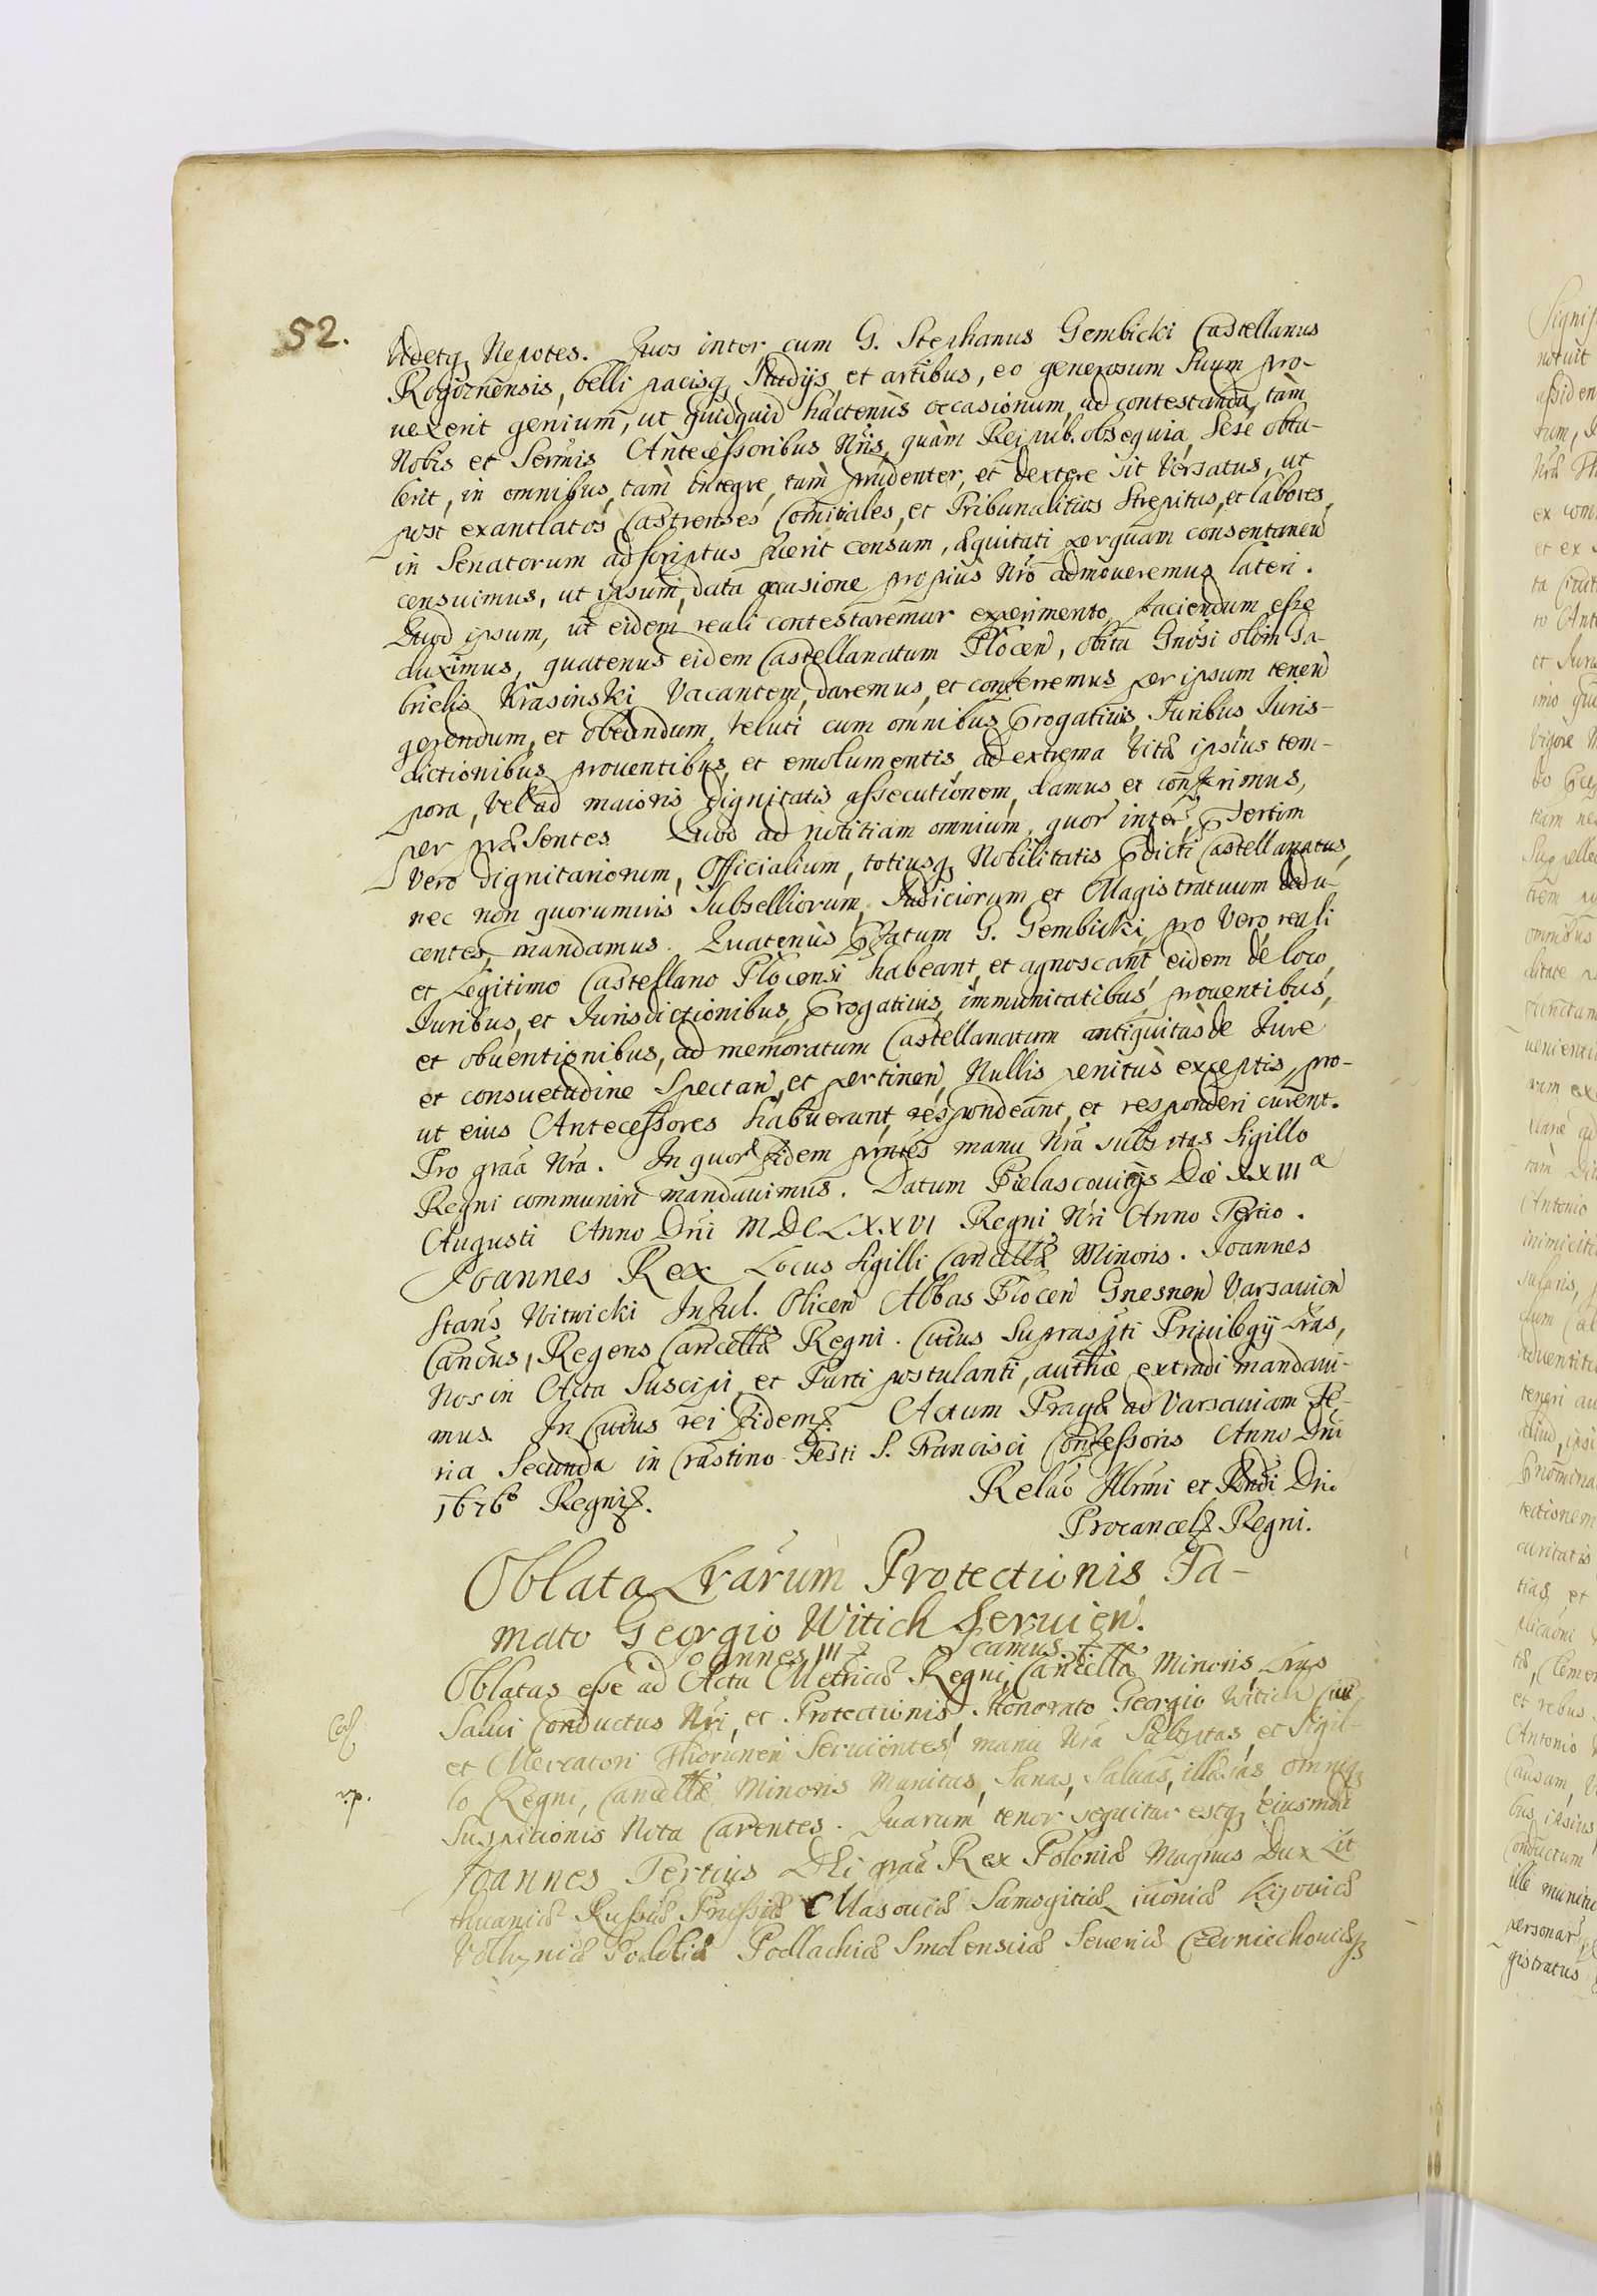 52.
Videtq Nepotes. Quos inter, cum G. Stephanus Gembicki Castellanus
Rogoznensis, belli pacisq Studijs et artibus, eo generosum Suum pro-
vexerit genium, ut quidquid hactenùs occasionum, ad contestanda, tàm
Nobis et Sermis Antecessoribus Nris, quàm Reipub. obsequia Sese obtu-
lerit, in omnibus, tàm integre, tàm prudenter, et dextere sit Versatus, ut
post exantlatos Castrenses Comitiales, et Tribunalitios Strepitus, et labores,
in Senatorum adscriptus fuerit censum, Æquitati perquam consentaneū
censuimus, ut ipsum, data occasione propiùs Nro admoveremus lateri.
Quod ipsum, ut eidem reali contestaremur experimento, faciendum esse
duximus, quatenus eidem Castellanatum Plocen, obitu Gnosi olim Ga-
brielis Krasinski Vacantem, daremus, et conferremus per ipsum tenen
gerendum, et obeundum, veluti cum omnibus Progativis, Iuribus, Iuris-
dictionibus proventibus, et emolumentis, ad extrema Vitæ ipsius tem-
pora, Vel ad maioris dignitatis assecutionem, damus et conferimus,
per præsentes. Quod ad notitiam omnium, quor inter, Psertim
Vero dignitariorum, Officialium, totiusq Nobilitatis Pdicti Castellanatus,
nec non quorumvis Subselliorum, Iudiciorum et Magistratuum dedu-
centes, mandamus. Quatenùs Pfatum G. Gembicki, pro Vero, reali
et Legitimo Castellano Plocensi habeant, et agnoscant, eidem de loco,
Iuribus, et Iurisdictionibus, Progativis, immunitatibus, proventibus,
et obventionibus, ad memoratum Castellanatum antiquitùs de Iure
et consuetudine Spectan, et pertinen, Nullis penitùs exceptis, pro-
ut eius Antecessores habuerunt, respondeant, et responderi curent.
Pro graā Nrā. In quor fidem pntes manu Nrā subsctas Sigillo
Regni communiri mandavimus. Datum Pielascovicijs Die XXIII a
Augusti Anno Dni MDCLXXVI Regni Nri Anno Tertio.
Joannes Rex Locus Sigilli Cancellæ Minoris. Joannes
Stans Witwicki Inful. Olicen Abbas Plocen Gnesnen Varsavien
Canōus, Regens Cancellæ Regni. Cuius Suprascpti Privilegij Lras,
Nos in Acta Suscipi, et Parti postulanti, authæ extradi mandavi-
mus. In Cuius rei fidem &. Actum Pragæ ad Varsaviam Fe-
ria Secunda in Crastino Festi S. Francisci Confessoris Anno Dni
1676o Regni&. Relāo Illrmi et Rndi Dni
Procancel& Regni.
Oblata Lrarum Protectionis Fa-
mato Georgio Witich Servien.
Joannes III & camus &
Oblatas esse ad Acta Metricæ Regni, Cancellæ Minoris Lras
Salvi Conductus Nri, et Protectionis Honorato Georgio Witich Civi
et Mercatori Thorunen Servientes, manu Nrā Subsctas, et Sigil-
lo Regni, Cancellæ Minoris Munitas, Sanas, Salvas, illæsas, omniq
Suspitionis Nota Carentes. Quarum tenor sequitur estq eiusmodi
Joannes Tertius Dei graā Rex Poloniæ Magnus Dux Lit-
thuaniæ Russiæ Prussiæ Masoviæ Samogitiæ ivoniæ Kijoviæ
Volhyniæ Podoliæ Podlachiæ Smolensciæ Severiæ Czerniechoviæq